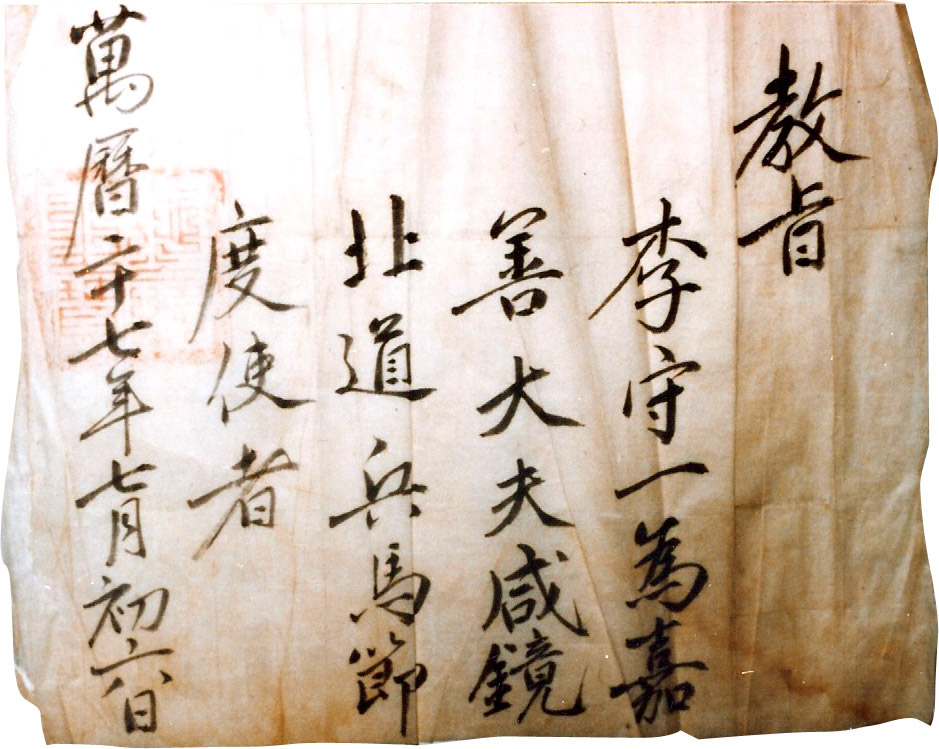 教旨
李守一為嘉
善大夫咸鏡
北道兵馬節
度使者
萬曆二十七年七月初六日